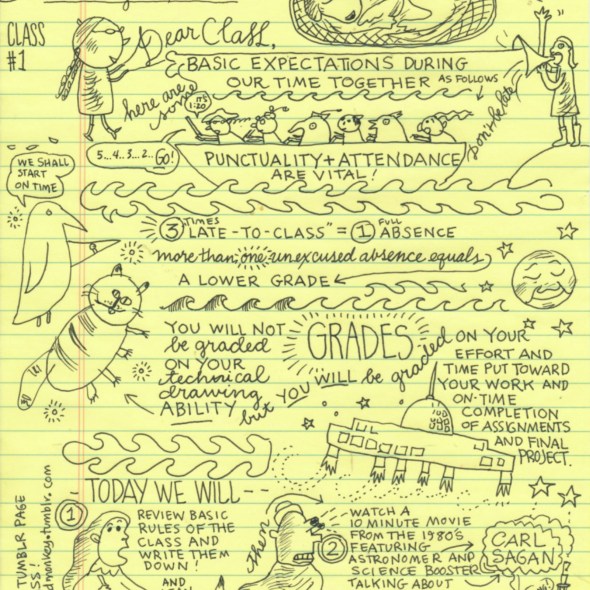 CLASS
#1
Dear Class,
here are
some
BASIC EXPECTATIONS DURING
OUR TIME TOGETHER AS FOLLOWS
IT'S
1:20
Don't be late!
5...4...3...2... GO!
PUNCTUALITY + ATTENDANCE
ARE VITAL!
WE SHALL
START
ON TIME
3 TIMES "LATE-TO-CLASS" = 1 FULL ABSENCE
more than one unexcused absence equals
A LOWER GRADE
YOU WILL NOT
be graded
ON YOUR
technical
drawing
ABILITY but YOU WILL be graded ON YOUR
GRADES
EFFORT AND
TIME PUT TOWARD
YOUR WORK AND
ON-TIME
COMPLETION
OF ASSIGNMENTS
AND FINAL
PROJECT.
-- TODAY WE WILL --
1
REVIEW BASIC
RULES OF THE
CLASS AND
WRITE THEM
DOWN!
AND
Then
2
WATCH A
10 MINUTE MOVIE
FROM THE 1980'S
FEATURING
ASTRONOMER AND
SCIENCE BOOSTER
TALKING ABOUT
CARL
SAGAN
TUMBLR PAGE
monkey.tumblr.com